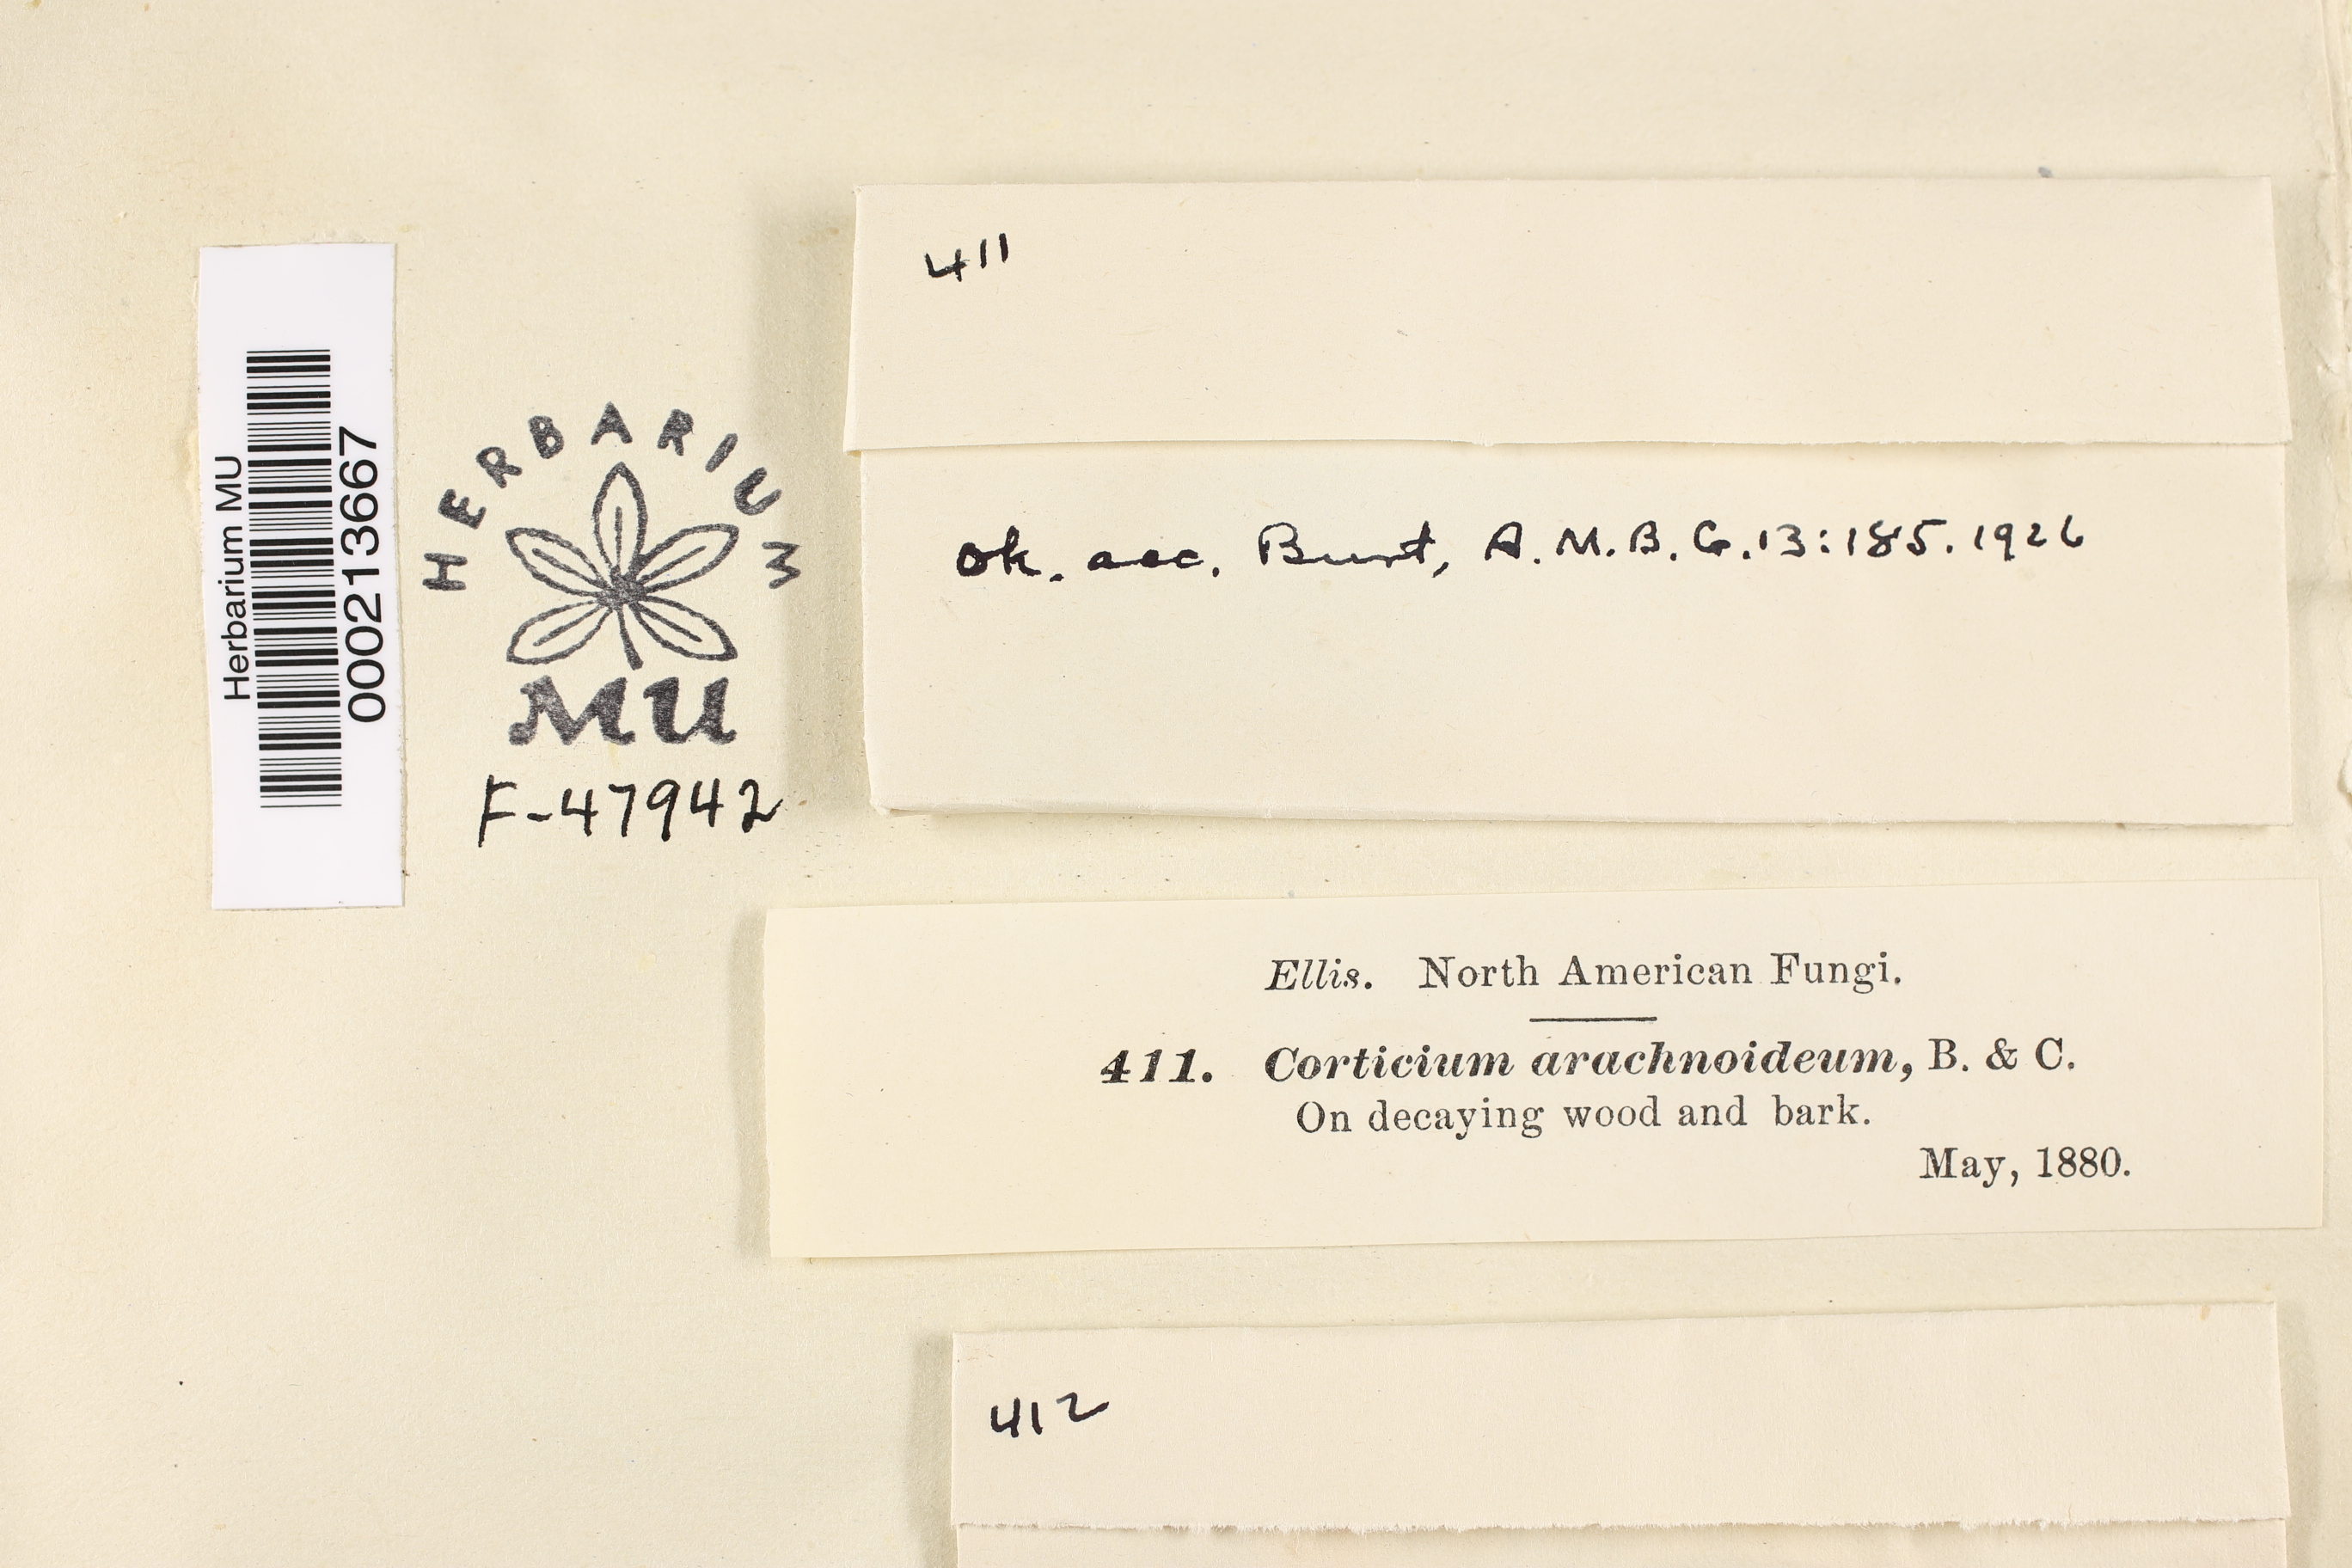 Herbarium MU
000213667
HERBARIUM
MU
F-47942
411
Ok. acc. Burt, A.M.B.G. 13:185. 1926
Ellis. North American Fungi.
411. Corticium arachnoideum, B. & C.
On decaying wood and bark.
May, 1880.
412